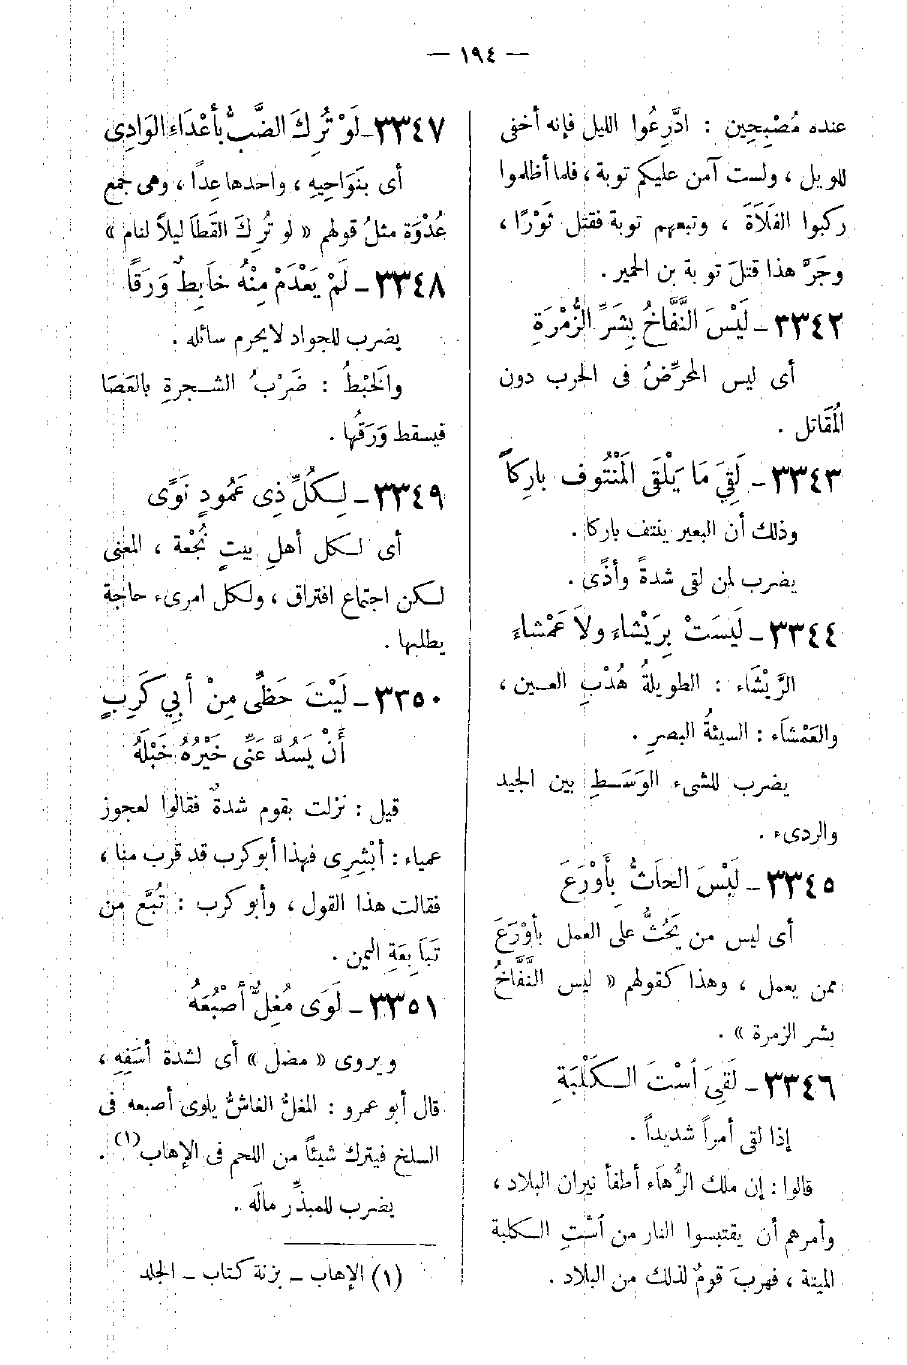 — ١٩٤ —
عنده مُصْبِحِين : ادَّرِعُوا الليل فإنه أخفى
للويل ، ولست آمن عليكم توبة ، فلما أظلموا
ركبوا الفَلَاةَ ، وتبعهم توبة فقتل ثَوْرًا ،
وجَرَّ هذا قتلَ توبة بن الحمير .
٣٣٤٢ – لَيْسَ النَّفَّاخُ بِشَرِّ الزُّمْرَةِ
أى ليس المحرِّضُ فى الحرب دون
المُقَاتل .
٣٣٤٣ – لَقِيَ مَا يَلْقَى المَنْتُوف بارِكاً
وذلك أن البعير ينتف باركا .
يضرب لمن لقى شدةً وأذًى .
٣٣٤٤ – لَيسَتْ بِرَيْشاء ولاَ عَمْشاء
الرَّيْشَاء : الطويلةُ هُدْبِ العـين ،
والعَمْشاَء : السيئةُ البصرِ .
يضرب للشىء الوَسَـطِ بين الجيد
والردىء .
٣٣٤٥ – لَيْسَ الحَاثُّ بِأَوْرَعَ
أى ليس من يَحُثُّ على العمل بأوْرَعَ
ممن يعمل ، وهذا كقولهم « ليس النَّفَّاخُ
بشر الزمرة » .
٣٣٤٦ – لَقِىَ اسْتَ الـكَلْبَةِ
إذا لقى أمراً شديداً .
قالوا : إن ملك الرُّهاَء أطفأ نيران البلاد ،
وأمرهم أن يقتبسوا النار من اسْتِ الـكلبة
الميتة ، فهربَ قومٌ لذلك من البلاد .
٣٣٤٧ – لَوْ تُرِكَ الضَّبُّ بأعْدَاءِ الوَادِى
أى بنَوَاحِيهِ ، واحدها عِدًا ، وهى جمع
عُدْوَة مثلُ قولهم « لو تُرِكَ القَطَا ليلاً لنام »
٣٣٤٨ – لَمْ يَعْدَمْ مِنْهُ خَابِطٌ وَرَقًا
يضرب للجواد لا يحرم سائله .
والَخبْطُ : ضَرْبُ الشـجرةِ بالعَصَا
فيسقط وَرَقُها .
٣٣٤٩ – لِـكُلِّ ذِى عَمُودٍ نَوًى
أى لـكل أهلِ بيتٍ نُجْعة ، المعنى
لـكن اجتماع افتراق ، ولـكل امرىء حاجة
يطلبها .
٣٣٥٠ – لَيْتَ حَظِّى مِنْ أَبِي كَرِبٍ
أَنْ يَسُدَّ عَنِّى خَيْرُهُ خَبْلَهُ
قيل : نزلت بقوم شدةٌ فقالوا لعجوز
عمياء : أبْشِرِى فهذا أبو كرب قد قرب منا ،
فقالت هذا القول ، وأبو كرب : تُبَّع من
تَبَابِعَةِ اليمن .
٣٣٥١ – لَوَى مُغِلٌّ أصْبُعَهُ
ويروى « مضل » أى لشدة أسَفِهِ ،
قال أبو عمرو : المغلُّ الغاشُّ يلوى أصبعه فى
السلخ فيترك شيئاً من اللحم فى الإهاب (١) .
يضرب للمبذِّر مالَه .
(١) الإهاب – بزنة كتاب – الجلد